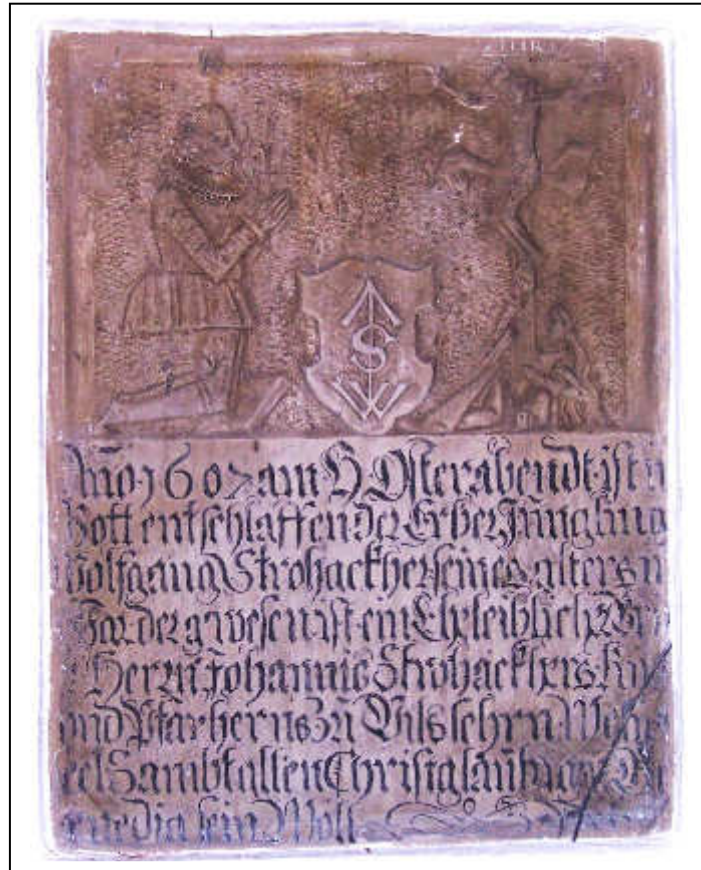 S
W
Año 1607 am H Osterabendt ist in
Gott entschlaffen der Erber Jüngling
Wolfgang Strohackher seines alters
Jar der gwesen ist ein Ehleiblich
Herrn Johannis Strohackhers
und Pfarherns zu Vilslehrn
Sambt allen Christglaubigen
genedig sein Wöll